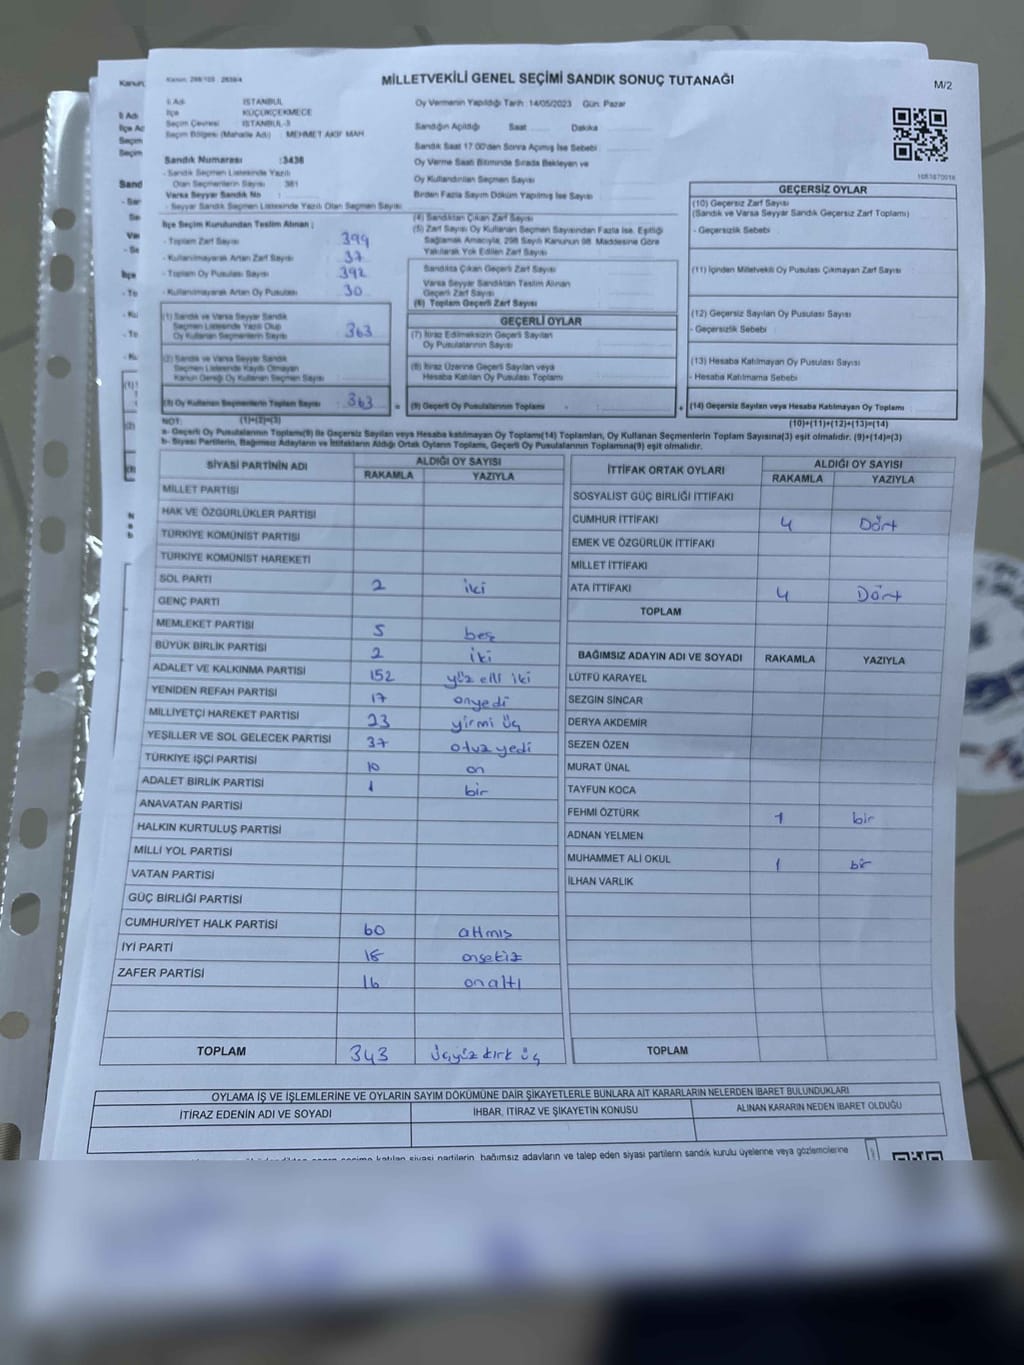 Kanun: 298/105 , 2839/4
MİLLETVEKİLİ GENEL SEÇİMİ SANDIK SONUÇ TUTANAĞI
M/2
İl Adı İSTANBUL
İlçe KÜÇÜKÇEKMECE
Seçim Çevresi İSTANBUL-3
Seçim Bölgesi (Mahalle Adı) : MEHMET AKİF MAH
Sandık Numarası :3436
- Sandık Seçmen Listesinde Yazılı
Olan Seçmenlerin Sayısı 381
Varsa Seyyar Sandık No
- Seyyar Sandık Seçmen Listesinde Yazılı Olan Seçmen Sayısı
Oy Vermenin Yapıldığı Tarih : 14/05/2023 Gün: Pazar
Sandığın Açıldığı Saat Dakika
Sandık Saat 17:00'den Sonra Açılmış İse Sebebi :
Oy Verme Saati Bitiminde Sırada Bekleyen ve
Oy Kullandırılan Seçmen Sayısı
Birden Fazla Sayım Döküm Yapılmış İse Sayısı
1081870016
İlçe Seçim Kurulundan Teslim Alınan ;
- Toplam Zarf Sayısı 399
- Kullanılmayarak Artan Zarf Sayısı 37
- Toplam Oy Pusulası Sayısı 392
- Kullanılmayarak Artan Oy Pusulası 30
(1) Sandık ve Varsa Seyyar Sandık
Seçmen Listesinde Yazılı Olup
Oy Kullanan Seçmenlerin Sayısı 363
(2) Sandık ve Varsa Seyyar Sandık
Seçmen Listesinde Kayıtlı Olmayan
Kanun Gereği Oy Kullanan Seçmen Sayısı
(3) Oy Kullanan Seçmenlerin Toplam Sayısı : 363
(4) Sandıktan Çıkan Zarf Sayısı
(5) Zarf Sayısı Oy Kullanan Seçmen Sayısından Fazla İse, Eşitliği
Sağlamak Amacıyla, 298 Sayılı Kanunun 98. Maddesine Göre
Yakılarak Yok Edilen Zarf Sayısı
Sandıkta Çıkan Geçerli Zarf Sayısı
Varsa Seyyar Sandıktan Teslim Alınan
Geçerli Zarf Sayısı
(6) Toplam Geçerli Zarf Sayısı
GEÇERLİ OYLAR
(7) İtiraz Edilmeksizin Geçerli Sayılan
Oy Pusulalarının Sayısı
(8) İtiraz Üzerine Geçerli Sayılan veya
Hesaba Katılan Oy Pusulası Toplamı
= (9) Geçerli Oy Pusulalarının Toplamı :
GEÇERSİZ OYLAR
(10) Geçersiz Zarf Sayısı
(Sandık ve Varsa Seyyar Sandık Geçersiz Zarf Toplamı)
- Geçersizlik Sebebi
(11) İçinden Milletvekili Oy Pusulası Çıkmayan Zarf Sayısı
(12) Geçersiz Sayılan Oy Pusulası Sayısı
- Geçersizlik Sebebi
(13) Hesaba Katılmayan Oy Pusulası Sayısı
- Hesaba Katılmama Sebebi
+ (14) Geçersiz Sayılan veya Hesaba Katılmayan Oy Toplamı
NOT: (1)+(2)=(3) (10)+(11)+(12)+(13)=(14)
a- Geçerli Oy Pusulalarının Toplamı(9) ile Geçersiz Sayılan veya Hesaba katılmayan Oy Toplamı(14) Toplamları, Oy Kullanan Seçmenlerin Toplam Sayısına(3) eşit olmalıdır. (9)+(14)=(3)
b- Siyasi Partilerin, Bağımsız Adayların ve İttifakların Aldığı Ortak Oyların Toplamı, Geçerli Oy Pusulalarının Toplamına(9) eşit olmalıdır.
SİYASİ PARTİNİN ADI ALDIĞI OY SAYISI
RAKAMLA YAZIYLA
MİLLET PARTİSİ
HAK VE ÖZGÜRLÜKLER PARTİSİ
TÜRKİYE KOMÜNİST PARTİSİ
TÜRKİYE KOMÜNİST HAREKETİ
SOL PARTİ 2 iki
GENÇ PARTİ
MEMLEKET PARTİSİ 5 beş
BÜYÜK BİRLİK PARTİSİ 2 iki
ADALET VE KALKINMA PARTİSİ 152 yüz elli iki
YENİDEN REFAH PARTİSİ 17 onyedi
MİLLİYETÇİ HAREKET PARTİSİ 23 yirmi üç
YEŞİLLER VE SOL GELECEK PARTİSİ 37 otuz yedi
TÜRKİYE İŞÇİ PARTİSİ 10 on
ADALET BİRLİK PARTİSİ 1 bir
ANAVATAN PARTİSİ
HALKIN KURTULUŞ PARTİSİ
MİLLİ YOL PARTİSİ
VATAN PARTİSİ
GÜÇ BİRLİĞİ PARTİSİ
CUMHURİYET HALK PARTİSİ 60 altmış
İYİ PARTİ 18 onsekiz
ZAFER PARTİSİ 16 onaltı
TOPLAM 343 üçyüz kırk üç
İTTİFAK ORTAK OYLARI ALDIĞI OY SAYISI
RAKAMLA YAZIYLA
SOSYALİST GÜÇ BİRLİĞİ İTTİFAKI
CUMHUR İTTİFAKI 4 Dört
EMEK VE ÖZGÜRLÜK İTTİFAKI
MİLLET İTTİFAKI
ATA İTTİFAKI 4 Dört
TOPLAM
BAĞIMSIZ ADAYIN ADI VE SOYADI RAKAMLA YAZIYLA
LÜTFÜ KARAYEL
SEZGİN SİNCAR
DERYA AKDEMİR
SEZEN ÖZEN
MURAT ÜNAL
TAYFUN KOCA
FEHMİ ÖZTÜRK 1 bir
ADNAN YELMEN
MUHAMMET ALİ OKUL 1 bir
İLHAN VARLIK
TOPLAM
OYLAMA İŞ VE İŞLEMLERİNE VE OYLARIN SAYIM DÖKÜMÜNE DAİR ŞİKAYETLERLE BUNLARA AİT KARARLARIN NELERDEN İBARET BULUNDUKLARI
İTİRAZ EDENİN ADI VE SOYADI İHBAR, İTİRAZ VE ŞİKAYETİN KONUSU ALINAN KARARIN NEDEN İBARET OLDUĞU
siyasi partilerin, bağımsız adayların ve talep eden siyasi partilerin sandık kurulu üyelerine veya gözlemcilerine